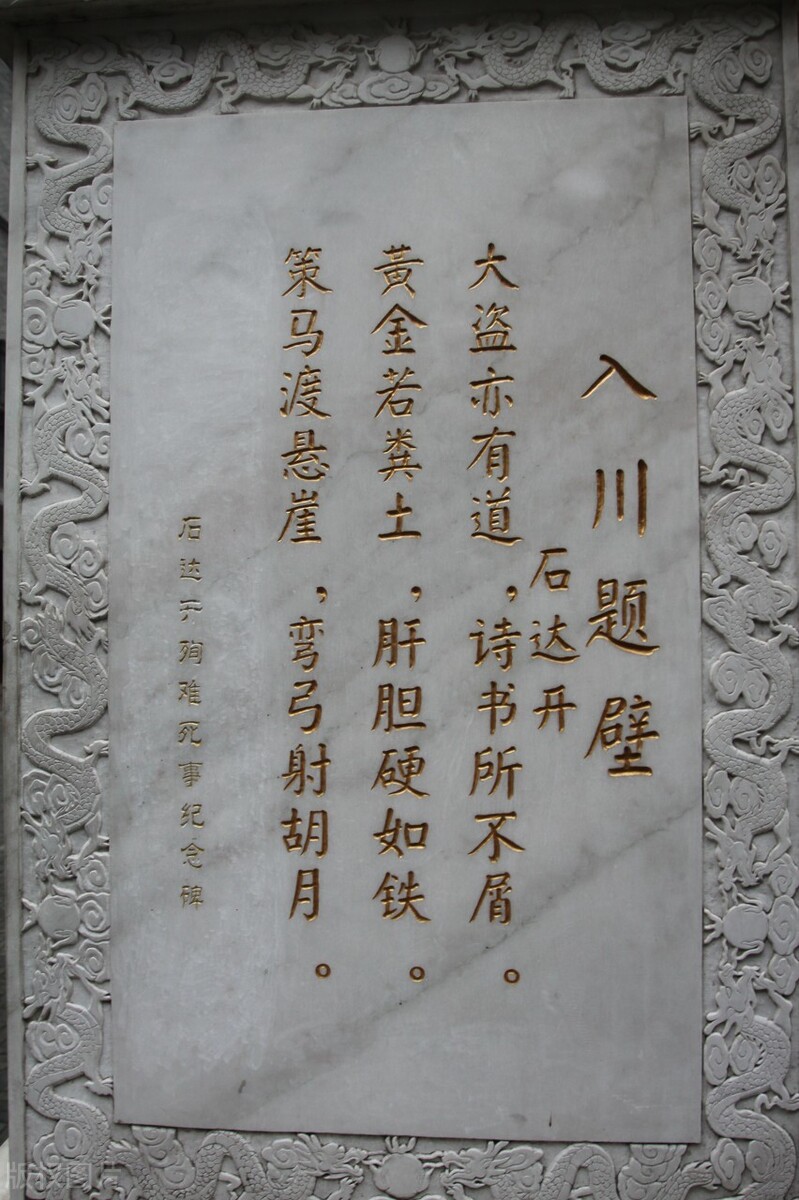 入川题壁
石达开
大盗亦有道，诗书所不屑。
黄金若粪土，肝胆硬如铁。
策马渡悬崖，弯弓射胡月。
石达开殉难死事纪念碑